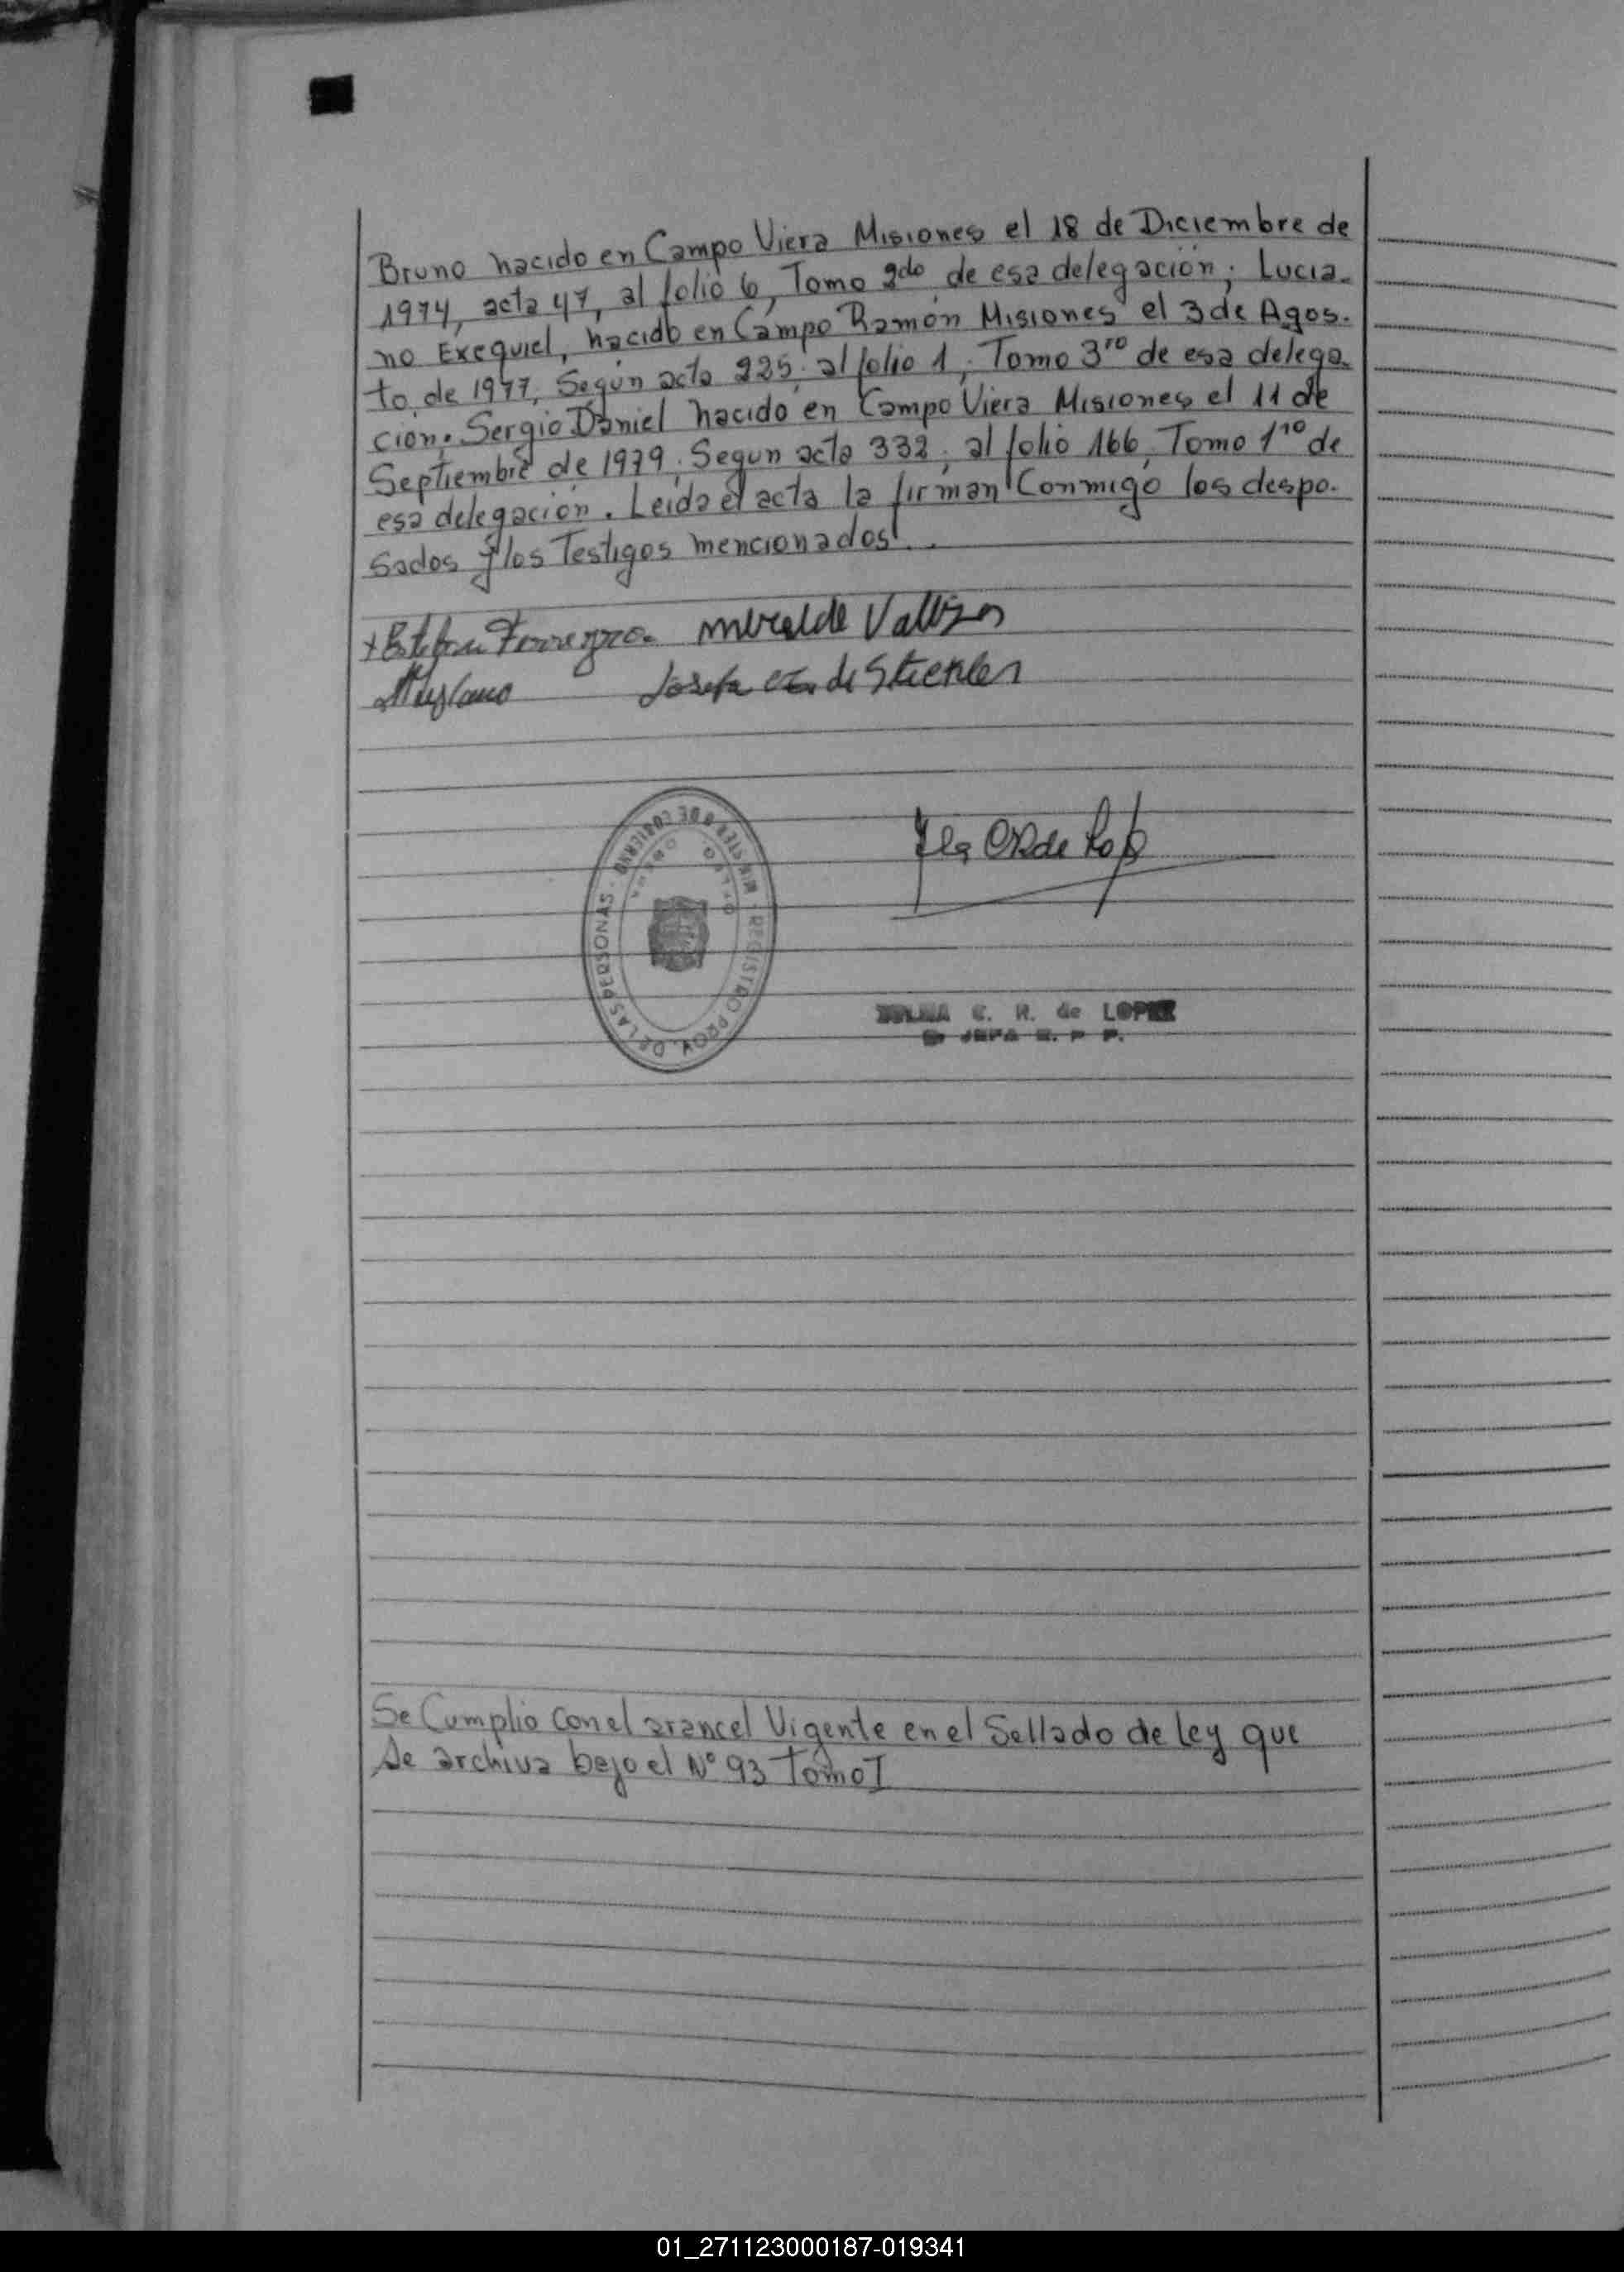 Bruno nacido en Campo Viera Misiones el 18 de Diciembre de
1974, acta 47, al folio 6, Tomo 2do de esa delegación; Lucia-
no Exequiel, nacido en Campo Ramón Misiones el 3 de Agos-
to de 1977, Según acta 225; al folio 1, Tomo 3ro de esa delega
cion; Sergio Daniel nacido en Campo Viera Misiones el 11 de
Septiembre de 1979. Segun acta 332, al folio 166, Tomo 1ro de
esa delegación. Leída el acta la firman Conmigo los despo-
sados y los Testigos mencionados.
de Vallejos
Josefa de
MINISTERIO DE GOBIERNO - REGISTRO PROV. DE LAS PERSONAS -
C. R. de LOPEZ
JEFA R. P. P.
Se Cumplio con el arancel Vigente en el Sellado de ley que
se archiva bajo el Nº 93 Tomo I
01_271123000187-019341